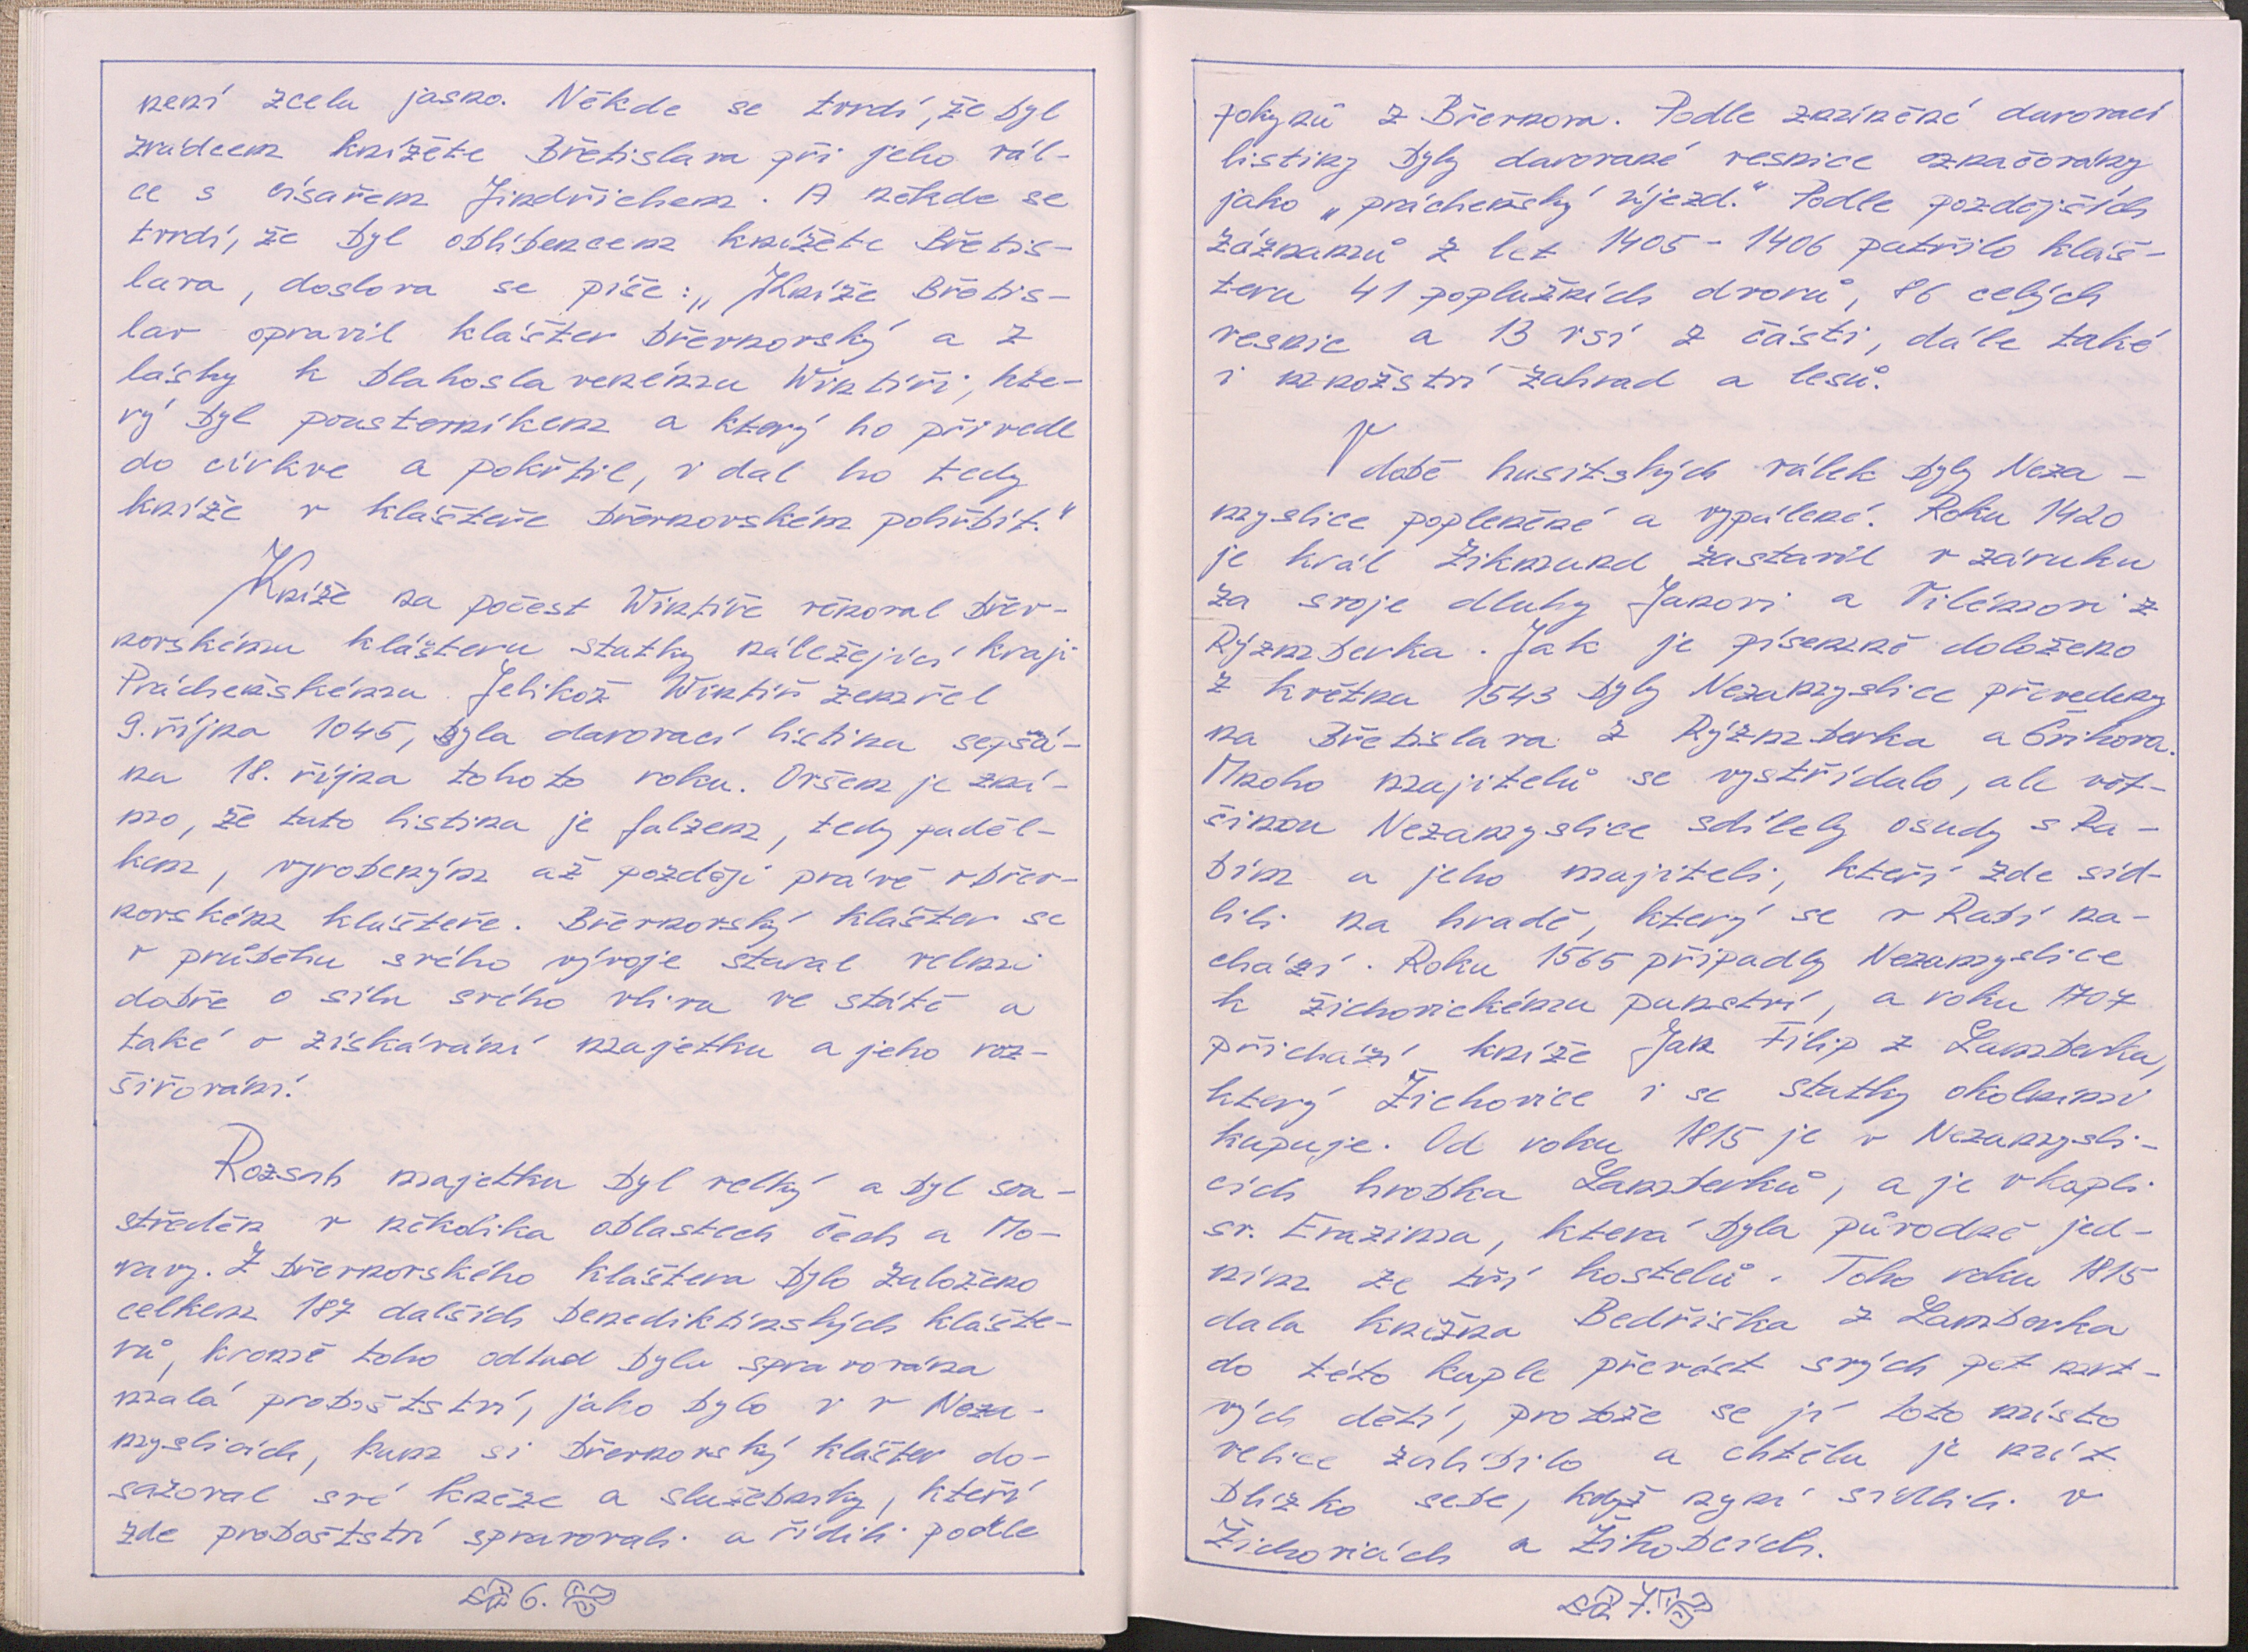 není zcela jasno. Někde se tvrdí, že byl
zrádcem knížete Břetislava při jeho vál-
ce s císařem Jindřichem. A někde se
tvrdí, že byl oblíbencem knížete Břetis-
lava, doslova se píše: „Kníže Břetis-
lav opravil klášter břevnovský a z
lásky k blahoslavenému Wintíři, kte-
rý byl poustevníkem a který ho přivedl
do církve a pokřtil, i dal ho tedy
kníže v klášteře břevnovském pohřbít."
Kníže na počest Wintíře věnoval břev-
novskému klášteru statky náležející kraji
Prácheňskému. Jelikož Wintíř zemřel
9. října 1045, byla darovací listina sepsá-
na 18. října tohoto roku. Ovšem je zná-
mo, že tato listina je falzem, tedy paděl-
kem, vyrobeným až později právě v břev-
novském klášteře. Břevnovský klášter se
v průběhu svého vývoje staral velmi
dobře o sílu svého vlivu ve státě a
také o získávání majetku a jeho roz-
šiřování.
Rozsah majetku byl velký a byl sou-
středěn v několika oblastech Čech a Mo-
ravy. Z břevnovského kláštera bylo založeno
celkem 187 dalších benediktínských klášte-
rů, kromě toho odtud byla spravována
malá proboštství, jako bylo i v Neza-
myslicích, kam si břevnovský klášter do-
sazoval své kněze a služebníky, kteří
zde proboštství spravovali a řídili podle
6.
pokynů z Břevnova. Podle zmíněné darovací
listiny byly darované vesnice označovány
jako „prácheňský újezd." Podle pozdějších
záznamů z let 1405 - 1406 patřilo kláš-
teru 41 poplužních dvorů, 86 celých
vesnic a 13 vsí z části, dále také
i množství zahrad a lesů.
V době husitských válek byly Neza-
myslice popleněné a vypálené. Roku 1420
je král Zikmund zastavil v záruku
za svoje dluhy Janovi a Vilémovi z
Rýzmberka. Jak je písemně doloženo
z května 1543 byly Nezamyslice převedeny
na Břetislava z Rýzmberka a Švihova.
Mnoho majitelů se vystřídalo, ale vět-
šinou Nezamyslice sdílely osudy s Ra-
bím a jeho majiteli, kteří zde síd-
lili na hradě, který se v Rabí na-
chází. Roku 1565 připadly Nezamyslice
k žichovickému panství, a roku 1707
přichází kníže Jan Filip z Lamberka,
který Žichovice i se statky okolními
kupuje. Od roku 1815 je v Nezamysli-
cích hrobka Lamberků, a je v kapli
sv. Erazima, která byla původně jed-
ním ze tří kostelů. Toho roku 1815
dala kněžna Bedřiška z Lamberka
do této kaple převést svých pět mrt-
vých dětí, protože se jí toto místo
velice zalíbilo a chtěla je mít
blízko sebe, když nyní sídlili v
Žichovicích a Žihobcích.
7.